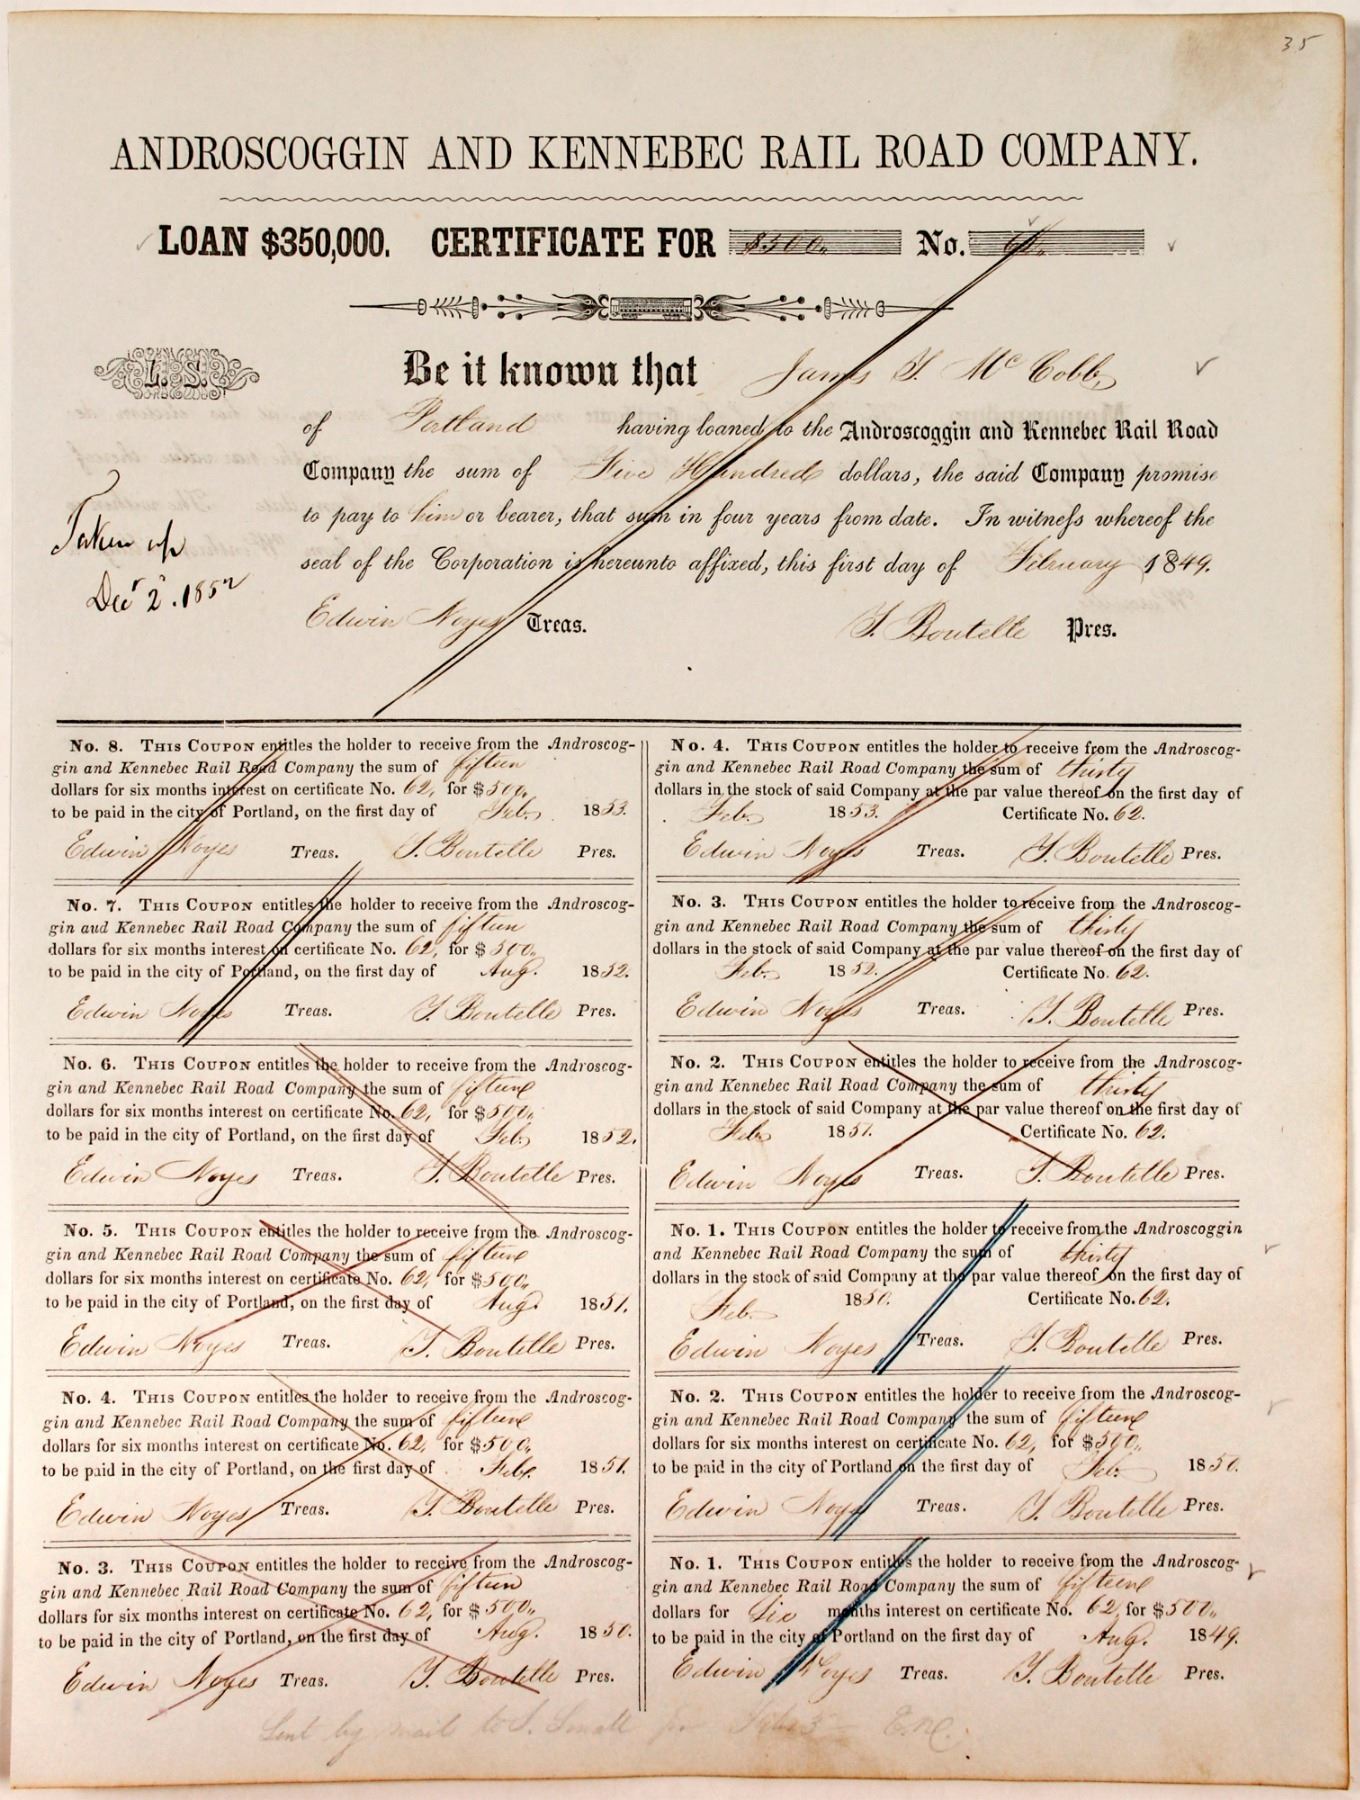 35
ANDROSCOGGIN AND KENNEBEC RAIL ROAD COMPANY.
LOAN $350,000. CERTIFICATE FOR $500,, No. 62,,
L. S.
Be it known that James T. McCobb,
of Portland having loaned to the Androscoggin and Kennebec Rail Road
Company the sum of Five Hundred dollars, the said Company promise
to pay to him or bearer, that sum in four years from date. In witness whereof the
seal of the Corporation is hereunto affixed, this first day of February 1849.
Edwin Noyes Treas. T. Boutelle Pres.
Taken up
Decr 2. 1852
No. 8. THIS COUPON entitles the holder to receive from the Androscog-
gin and Kennebec Rail Road Company the sum of fifteen
dollars for six months interest on certificate No. 62, for $500,,
to be paid in the city of Portland, on the first day of Feb. 1853.
Edwin Noyes Treas. T. Boutelle Pres.
No. 7. THIS COUPON entitles the holder to receive from the Androscog-
gin aud Kennebec Rail Road Company the sum of fifteen
dollars for six months interest on certificate No. 62, for $500,,
to be paid in the city of Portland, on the first day of Aug. 1852.
Edwin Noyes Treas. T. Boutelle Pres.
No. 6. THIS COUPON entitles the holder to receive from the Androscog-
gin and Kennebec Rail Road Company the sum of fifteen
dollars for six months interest on certificate No. 62, for $500,,
to be paid in the city of Portland, on the first day of Feb. 1852.
Edwin Noyes Treas. T. Boutelle Pres.
No. 5. THIS COUPON entitles the holder to receive from the Androscog-
gin and Kennebec Rail Road Company the sum of fifteen
dollars for six months interest on certificate No. 62, for $500,,
to be paid in the city of Portland, on the first day of Aug. 1851.
Edwin Noyes Treas. T. Boutelle Pres.
No. 4. THIS COUPON entitles the holder to receive from the Androscog-
gin and Kennebec Rail Road Company the sum of fifteen
dollars for six months interest on certificate No. 62, for $500,,
to be paid in the city of Portland, on the first day of Feb. 1851.
Edwin Noyes Treas. T. Boutelle Pres.
No. 3. THIS COUPON entitles the holder to receive from the Androscog-
gin and Kennebec Rail Road Company the sum of fifteen
dollars for six months interest on certificate No. 62, for $500,,
to be paid in the city of Portland, on the first day of Aug. 1850.
Edwin Noyes Treas. T. Boutelle Pres.
No. 4. THIS COUPON entitles the holder to receive from the Androscog-
gin and Kennebec Rail Road Company the sum of thirty
dollars in the stock of said Company at the par value thereof on the first day of
Feb. 1853. Certificate No. 62.
Edwin Noyes Treas. T. Boutelle Pres.
No. 3. THIS COUPON entitles the holder to receive from the Androscog-
gin and Kennebec Rail Road Company the sum of thirty
dollars in the stock of said Company at the par value thereof on the first day of
Feb. 1852. Certificate No. 62.
Edwin Noyes Treas. T. Boutelle Pres.
No. 2. THIS COUPON entitles the holder to receive from the Androscog-
gin and Kennebec Rail Road Company the sum of thirty
dollars in the stock of said Company at the par value thereof on the first day of
Feb. 1851. Certificate No. 62.
Edwin Noyes Treas. T. Boutelle Pres.
No. 1. THIS COUPON entitles the holder to receive from the Androscoggin
and Kennebec Rail Road Company the sum of thirty
dollars in the stock of said Company at the par value thereof on the first day of
Feb. 1850. Certificate No. 62.
Edwin Noyes Treas. T. Boutelle Pres.
No. 2. THIS COUPON entitles the holder to receive from the Androscog-
gin and Kennebec Rail Road Company the sum of fifteen
dollars for six months interest on certificate No. 62, for $500,,
to be paid in the city of Portland on the first day of Feb. 1850.
Edwin Noyes Treas. T. Boutelle Pres.
No. 1. THIS COUPON entitles the holder to receive from the Androscog-
gin and Kennebec Rail Road Company the sum of fifteen
dollars for Six months interest on certificate No. 62, for $500,,
to be paid in the city of Portland on the first day of Aug. 1849.
Edwin Noyes Treas. T. Boutelle Pres.
Sent by mail to S. Small